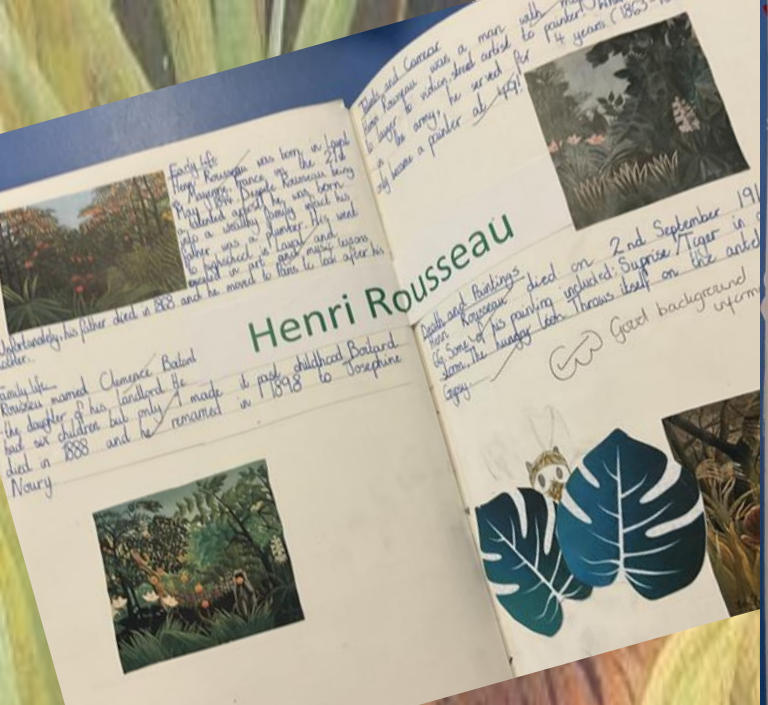 Early life
Henri Rousseau was born in Laval
Mayenne, France on the 21st
May 1844. Despite Rousseau being
a talented artist, he was born
into a wealthy family
father was a plumber. He went
to highschool in Laval and
in art and music lessons
Unfortunately, his father died in 1868 and he moved to Paris to look after his
Family life
Rousseau married Clemence Boitard
the daughter of his landlord He
had six children but only 1 made it past childhood Boitard
died in 1888 and he remarried in 1898 to Josephine
Noury
Henri Rousseau
Henri Rousseau was a man with
to lawyer to violin street artist to painter!
in the army, he served for 4 years (1863-
became a painter at 49!
Death and Paintings
Henri Rousseau died on 2nd September 191
Some of his painting included: Suprise/Tiger in a
storm. The hungry lion Throws itself on the antel
Gypsy.
Good background